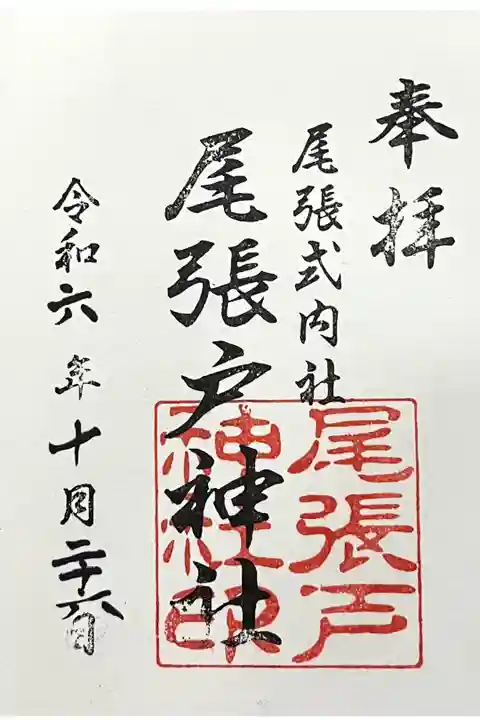 奉拝
尾張式内社
尾張戸神社
令和六年十月二十六日
尾張戸
神社印